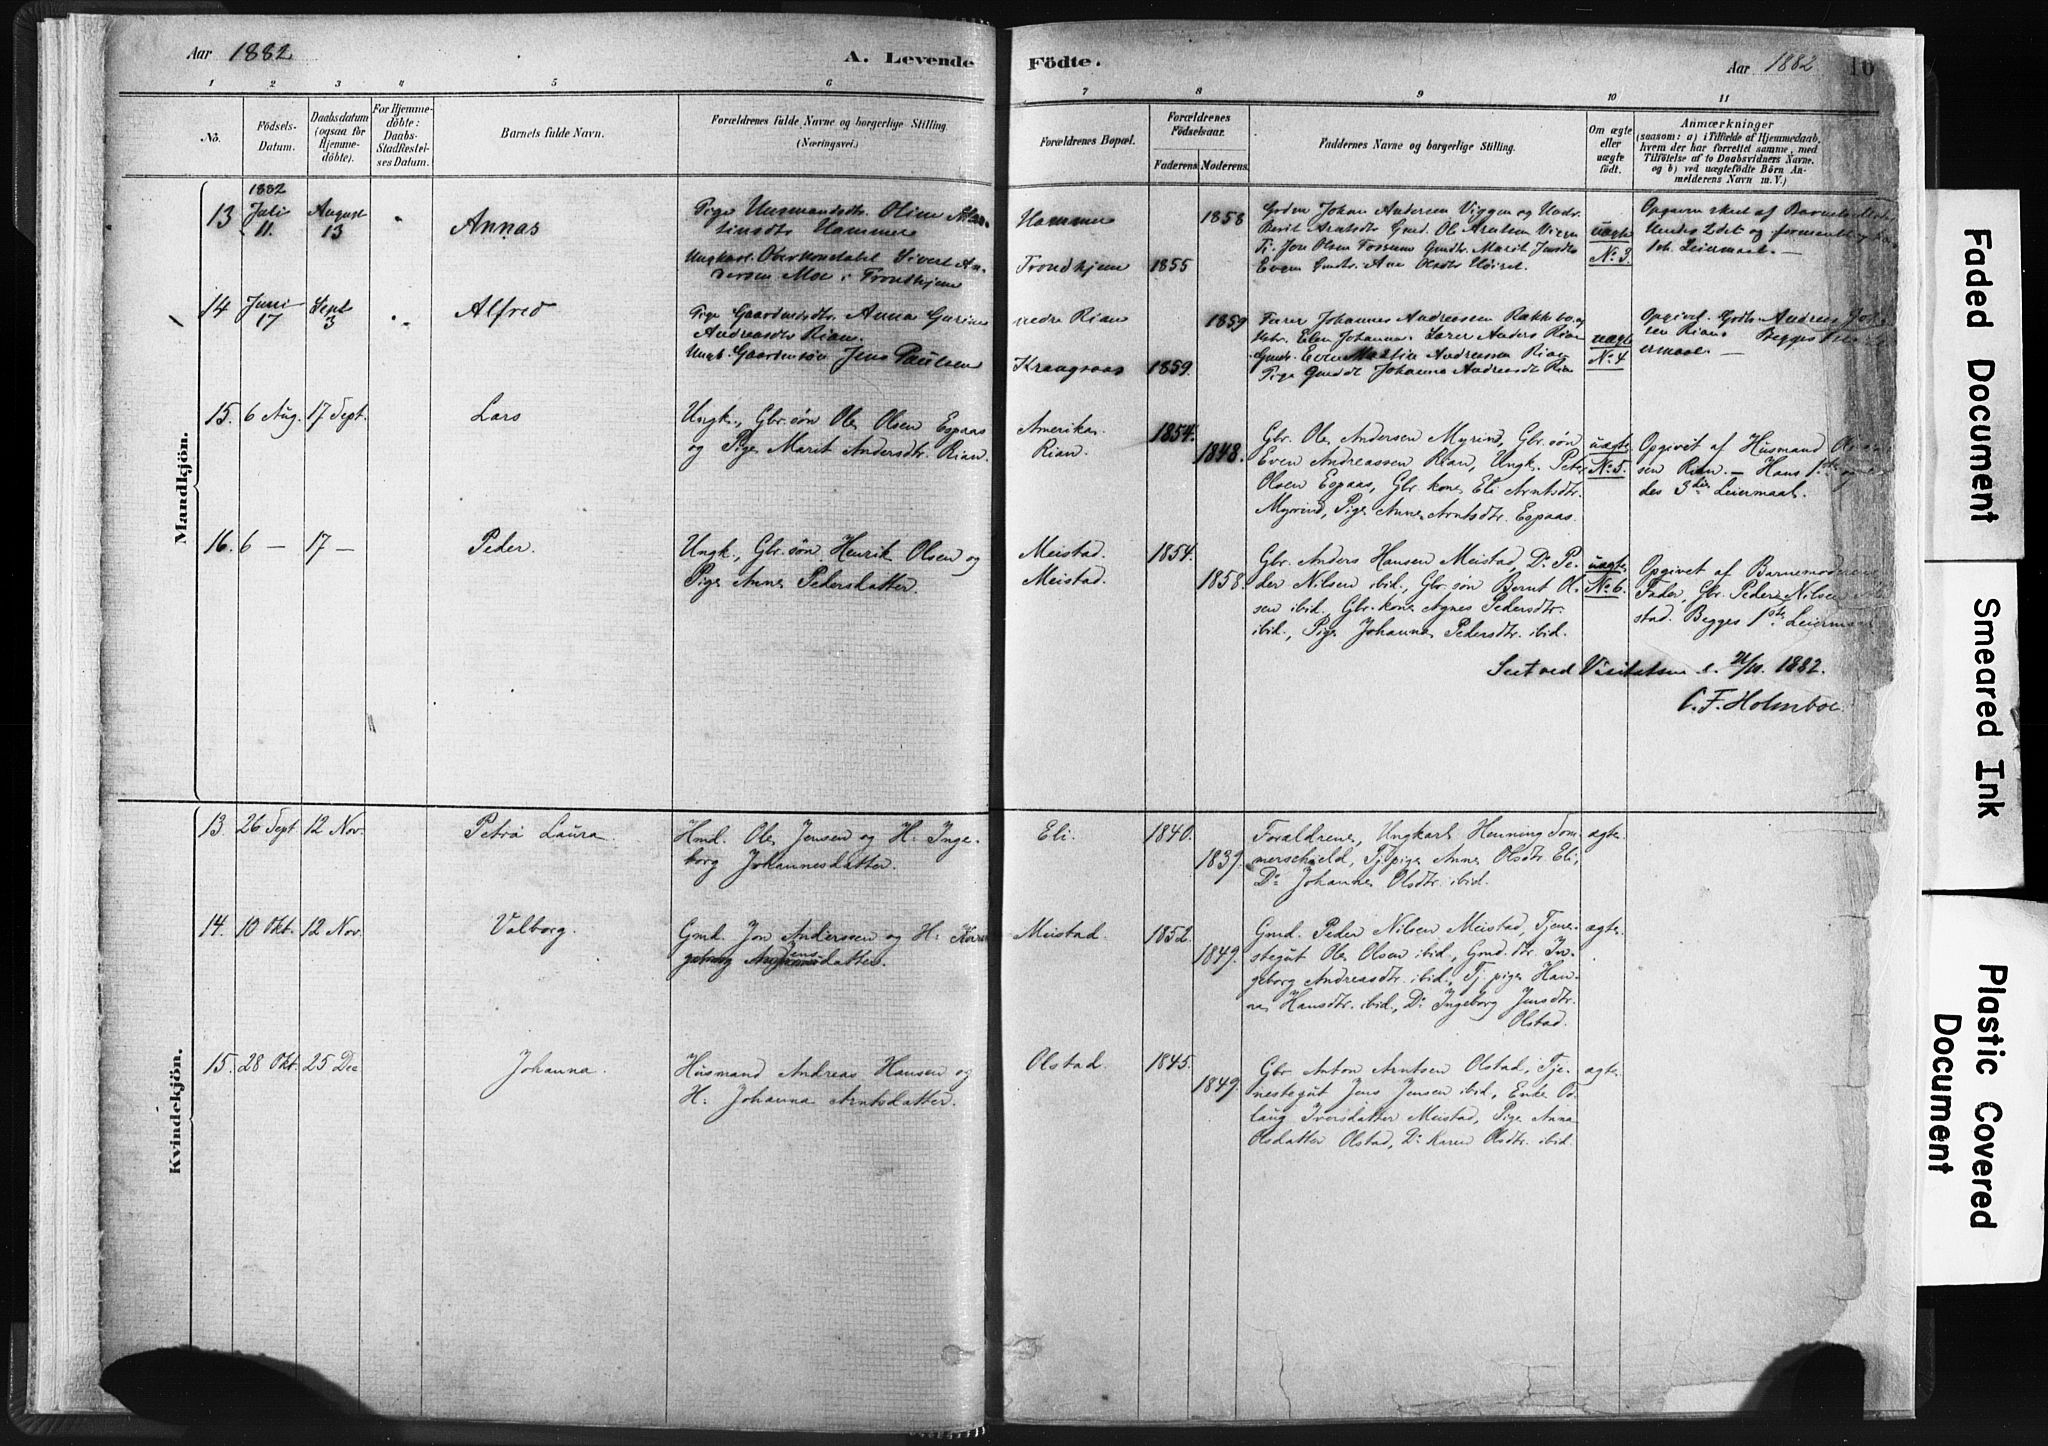 Aar 1882
A. Levende Födte.
Aar 1882 10
1 2 3 4 5 6 7 8 9 10 11
No.
Födsels-Datum.
Daabsdatum (ogsaa for Hjemmedöbte).
For Hjemmedöbte: Daabs-Stadfæstelses Datum.
Barnets fulde Navn.
Forældrenes fulde Navne og borgerlige Stilling. (Næringsvei.)
Forældrenes Bopæl.
Forældrenes Födselsaar.
Faderens. Moderens.
Faddernes Navne og borgerlige Stilling.
Om ægte eller uægte födt.
Anmærkninger
(saasom: a) i Tilfælde af Hjemmedaab, hvem der har forrettet samme, med Tilföielse af to Daabsvidners Navne, og b) ved uægtefödte Börn Anmelderens Navn m. V.)
Mandkjön.
13 1882 Juli 11. August 13 Annas
Pige Husmandsdtr. Oline
Hammer
Ungkarl Oberkonstabel Sivert Andersen Moe i Trondhjem
Hammer 1858
Trondhjem 1855
Johan Andersen Viggen og Hustr.
Berit Arntsdtr Gmd. Ol Arntsen
Tj. Jon Olsen Fossum Gmdtr Marit
Even Ane Olsdtr
uægte No 3.
Opgiven skeet af Barnets
Hendes 2det og formentlig
Leiermaal. —
14 Juni 17 Sept 3 Alfred
Pige Gaardmdsdtr. Anna Gurine
Andreasdtr Rian.
Ungk. Gaardmssön Jens Paulsen
nedre Rian 1859
Kraagsaas 1859.
Farer Johannes Andreassen Rakkbo og
Hstr. Elen Johanna. Lærer Anders Rian
Gmds. Even Martin Andreassen Rian
Pige Gmddt Johanna Andreasdt Rian
uægte No 4
Opgived. Gdb. Andreas
sen Rian. Begges
ermaal —
15. 6 Aug. 17 Sept. Lars
Ungk., Gbr. søn Ole Olsen Espaas
og Pige Marit Andersdtr. Rian.
Amerika. 1854.
Rian. 1848.
Gbr. Ole Andersen Myrind, Gbr. søn
Even Andreassen Rian, Ungk. Peter
Olsen Espaas, Gbr. kone Eli Arntsdtr.
Myrind, Pige Anne Arntsdtr. Espaas.
uægte No 5.
Opgivet af Husmand
sen Rian. — Hans 1ste og
des 3die Leiermaal.
16. 6 — 17 — Peder.
Ungk., Gbr. søn Henrik Olsen og
Pige Anne Pedersdatter.
Meistad. 1854.
Meistad. 1858.
Gbr. Anders Hansen Meistad, Do Pe-
der Nilsen ibid., Gbr. søn Bernt Ol-
sen ibid., Gbr. kone Agnes Pedersdtr.
ibid., Pige Johanna Pedersdtr. ibid.
uægte No 6.
Opgivet af Barnemoderens
Fader, Gbr. Peder Nilsen
stad. Begges 1ste Leiermaal.
Seet ved Visitatsen d. 21/10. 1882.
C. F. Holmboe.
Kvindekjön.
13. 26 Sept 12 Nov. Petra Laura
Hmd. Ole Jensen og H: Inge-
borg Johannesdatter.
Eli. 1840. 1839.
Forældrene, Ungkarl Henning Som-
merschield, Tj. pige Anne Olsdtr. Eli,
Do Johanne Olsdtr. ibid.
ægte.
14. 10 Okt. 12 Nov. Valborg.
Gmd. Jon Anderssen og H: Karen
Jensdatter.
Meistad. 1852. 1849.
Gmd. Peder Nilsen Meistad, Tjene-
stegut Ole Olsen ibid., Gmd. dtr. In-
geborg Andreasdtr. ibid., Tj. pige Han-
na Hansdtr. ibid., Do Ingeborg Jensdtr.
Olstad.
ægte.
15. 28 Okt. 25 Dec Johanna.
Husmand Andreas Hansen og
H: Johanna Arntsdatter.
Olstad. 1845. 1849.
Gbr Anton Arntsen Olstad, Tje-
nestegut Jens Jensen ibid., Enke Od-
laug Iversdatter Meistad, Pige Anna
Olsdatter Olstad, Do Karen Olsdtr. ibid.
ægte.
Faded Document
Smeared Ink
Plastic Covered Document